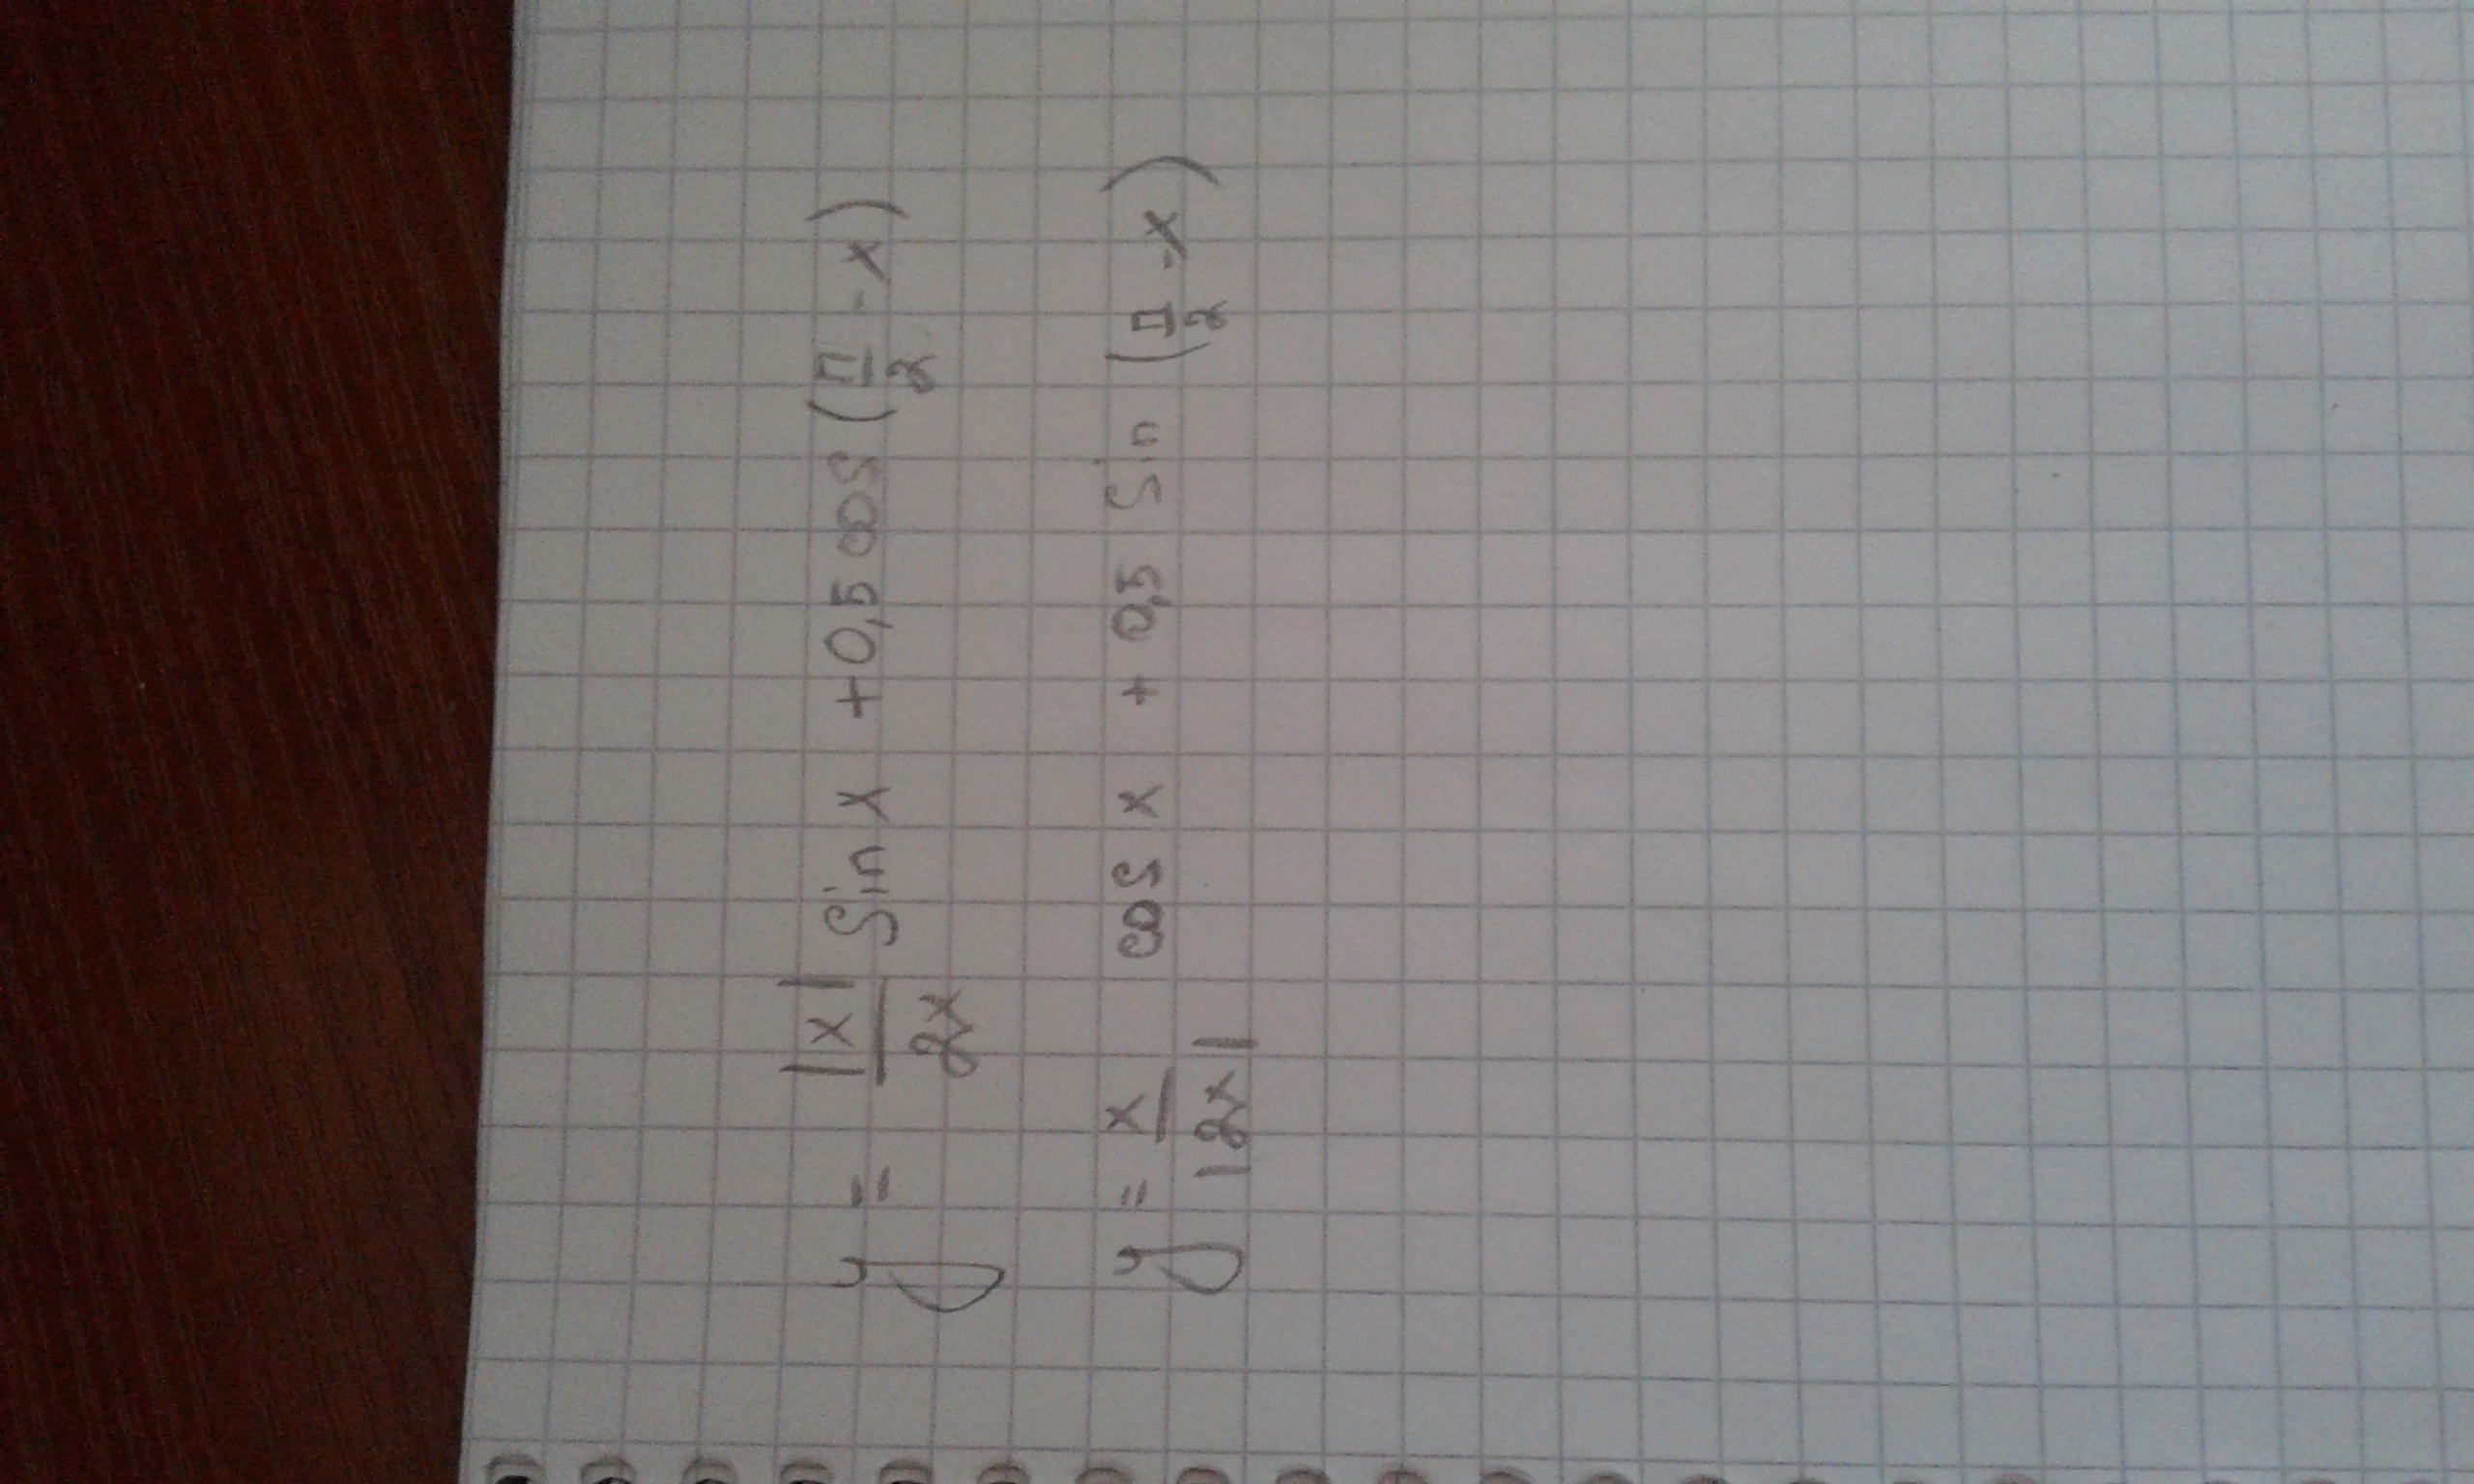 y = |x|/2x Sin x + 0,5 cos (π/2 - x)
y = x/|2x| cos x + 0,5 Sin (π/2 - x)